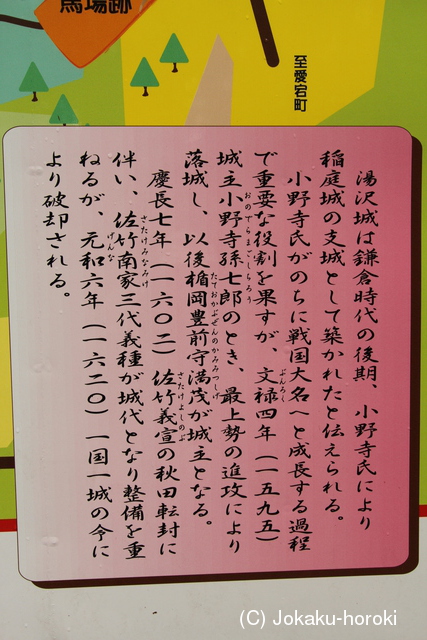 馬場跡
至愛宕町
湯沢城は鎌倉時代の後期、小野寺氏により
稲庭城の支城として築かれたと伝えられる。
小野寺氏がのちに戦国大名へと成長する過程
で重要な役割を果すが、文禄四年（一五九五）
ぶんろく
城主小野寺孫七郎のとき、最上勢の進攻により
おのでらまごしちろう
落城し、以後楯岡豊前守満茂が城主となる。
たておかぶぜんのかみみつしげ
慶長七年（一六〇二）佐竹義宣の秋田転封に
さたけよしのぶ
伴い、佐竹南家三代義種が城代となり整備を重
さたけみなみけ
ねるが、元和六年（一六二〇）一国一城の令に
げんな
より破却される。
(C) Jokaku-horoki